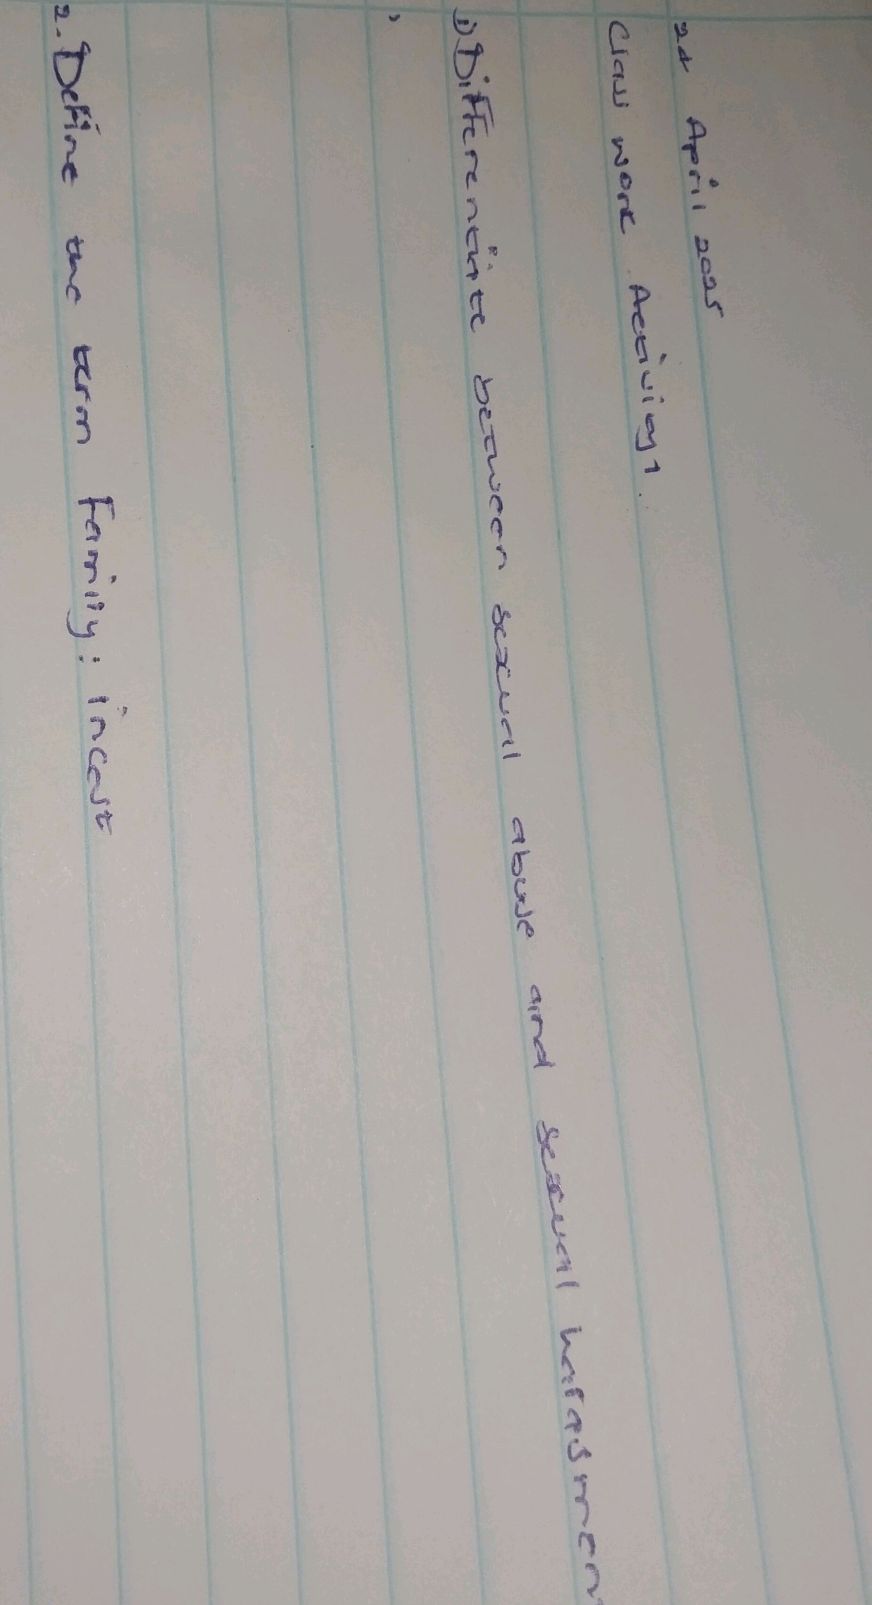 24 April 2025
Class work Activity 1.
1) Differentiate between sexual abuse and sexual harasmen
2. Define the term Family: incest